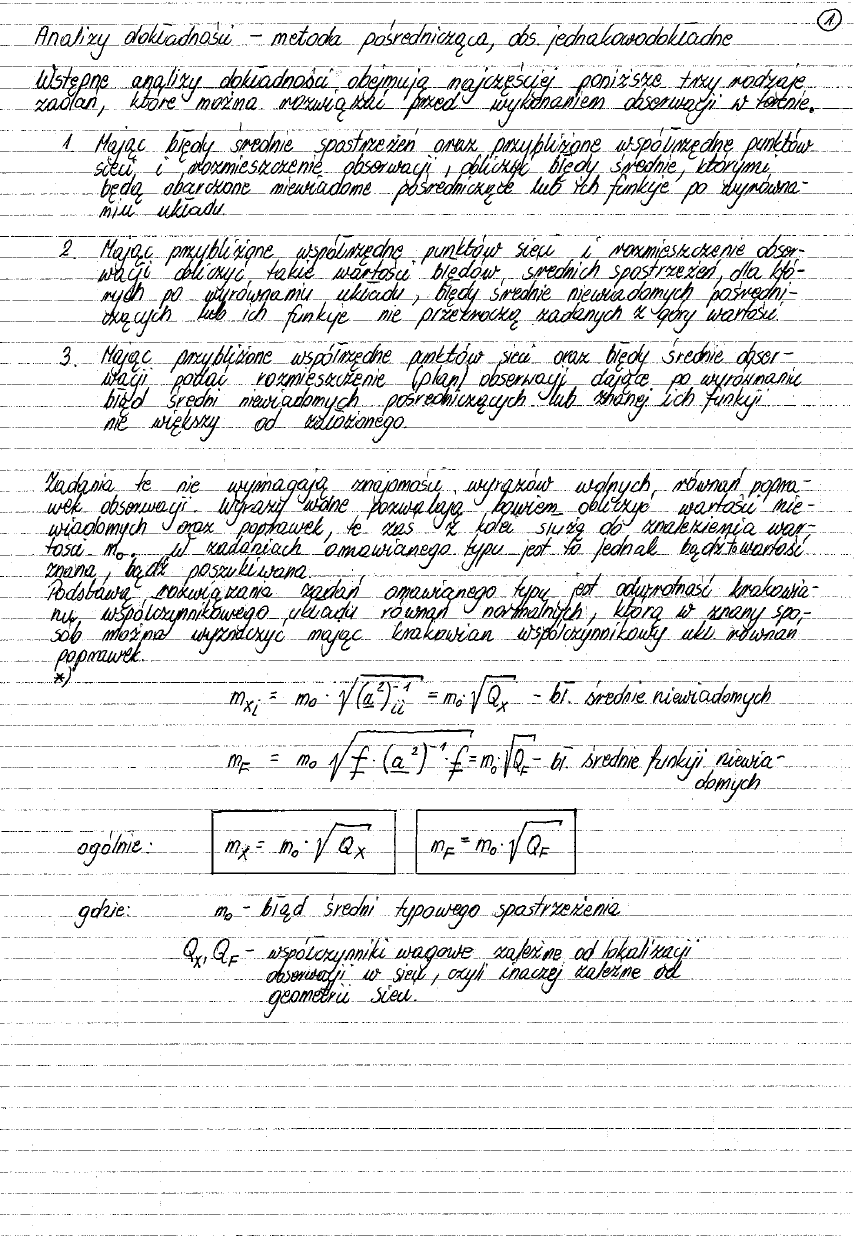 1
Analizy dokładności – metoda pośrednicząca, obs. jednakowodokładne
Wstępne analizy dokładności obejmują najczęściej poniższe trzy rodzaje
zadań, które można rozwiązać przed wykonaniem obserwacji w terenie.
1. Mając błędy średnie spostrzeżeń oraz przybliżone współrzędne punktów
sieci i rozmieszczenie obserwacji, obliczyć błędy średnie, którymi
będą obarczone niewiadome pośredniczące lub ich funkcje po wyrówna-
niu układu.
2. Mając przybliżone współrzędne punktów sieci i rozmieszczenie obser-
wacji obliczyć takie wartości błędów średnich spostrzeżeń, dla któ-
rych po wyrównaniu układu, błędy średnie niewiadomych pośredni-
czących lub ich funkcje nie przekroczą zadanych z góry wartości.
3. Mając przybliżone współrzędne punktów sieci oraz błędy średnie obser-
wacji podać rozmieszczenie (plan) obserwacji dające po wyrównaniu
błąd średni niewiadomych pośredniczących lub znanej ich funkcji
nie większy od założonego.
Zadania te nie wymagają znajomości wyrazów wolnych, równań popra-
wek obserwacji. Wyrazy wolne pozwalają bowiem obliczyć wartości nie-
wiadomych oraz poprawek, te zaś z kolei służą do znalezienia war-
tości m₀. W zadaniach omawianego typu jest to jednak bądź to wartość
znana, bądź poszukiwana.
Podstawą rozwiązania zadań omawianego typu jest odwrotność krakowia-
nu współczynnikowego układu równań normalnych, którą w znany spo-
sób można wyznaczyć mając krakowian współczynnikowy ukł. równań
poprawek.
*)
m_xi = m₀ · √(a²)⁻¹_ii = m₀ · √Q_x – bł. średnie niewiadomych
m_F = m₀ √f · (a²)⁻¹ · f = m₀ · √Q_F – bł. średnie funkcji niewia-
domych
ogólnie: m_x = m₀ · √Q_x m_F = m₀ · √Q_F
gdzie: m₀ – błąd średni typowego spostrzeżenia
Q_x, Q_F – współczynniki wagowe zależne od lokalizacji
obserwacji w sieci, czyli inaczej zależne od
geometrii sieci.